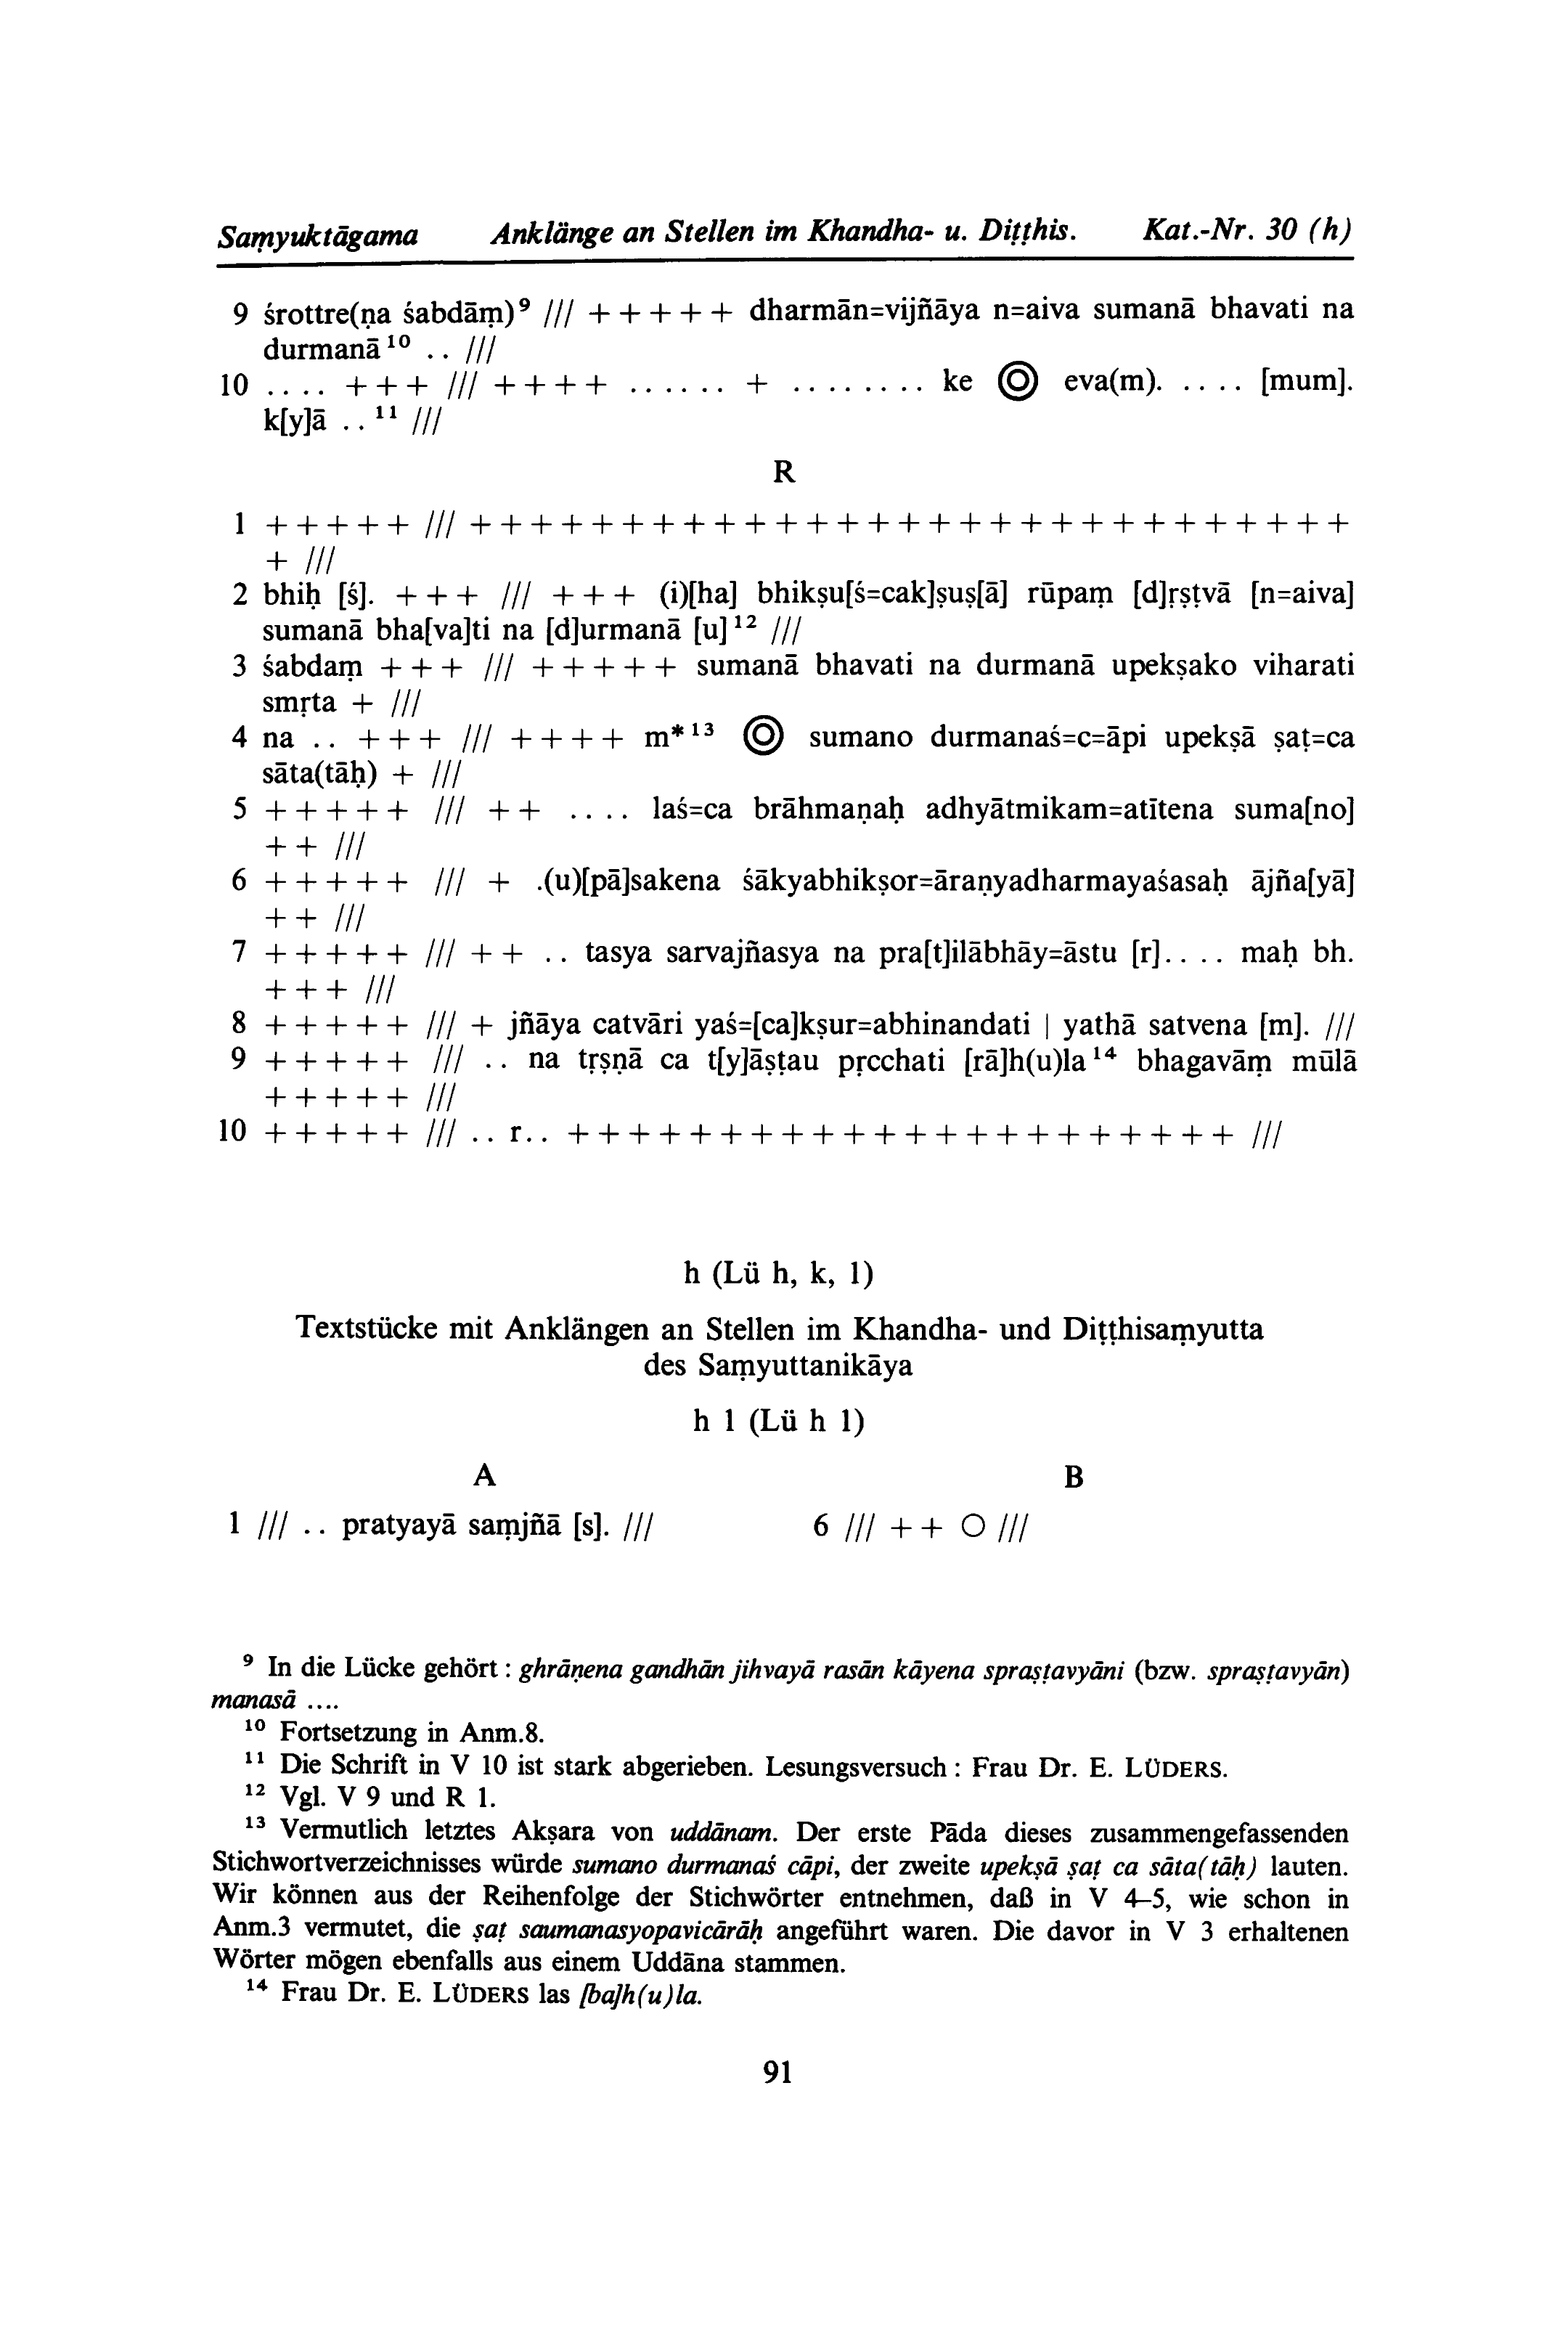 Saṃyuktāgama Anklänge an Stellen im Khandha- u. Diṭṭhis. Kat.-Nr. 30 (h)
9 śrottre(ṇa śabdāṃ)⁹ /// + + + + + dharmān=vijñāya n=aiva sumanā bhavati na
durmanā¹⁰ .. ///
10 .... + + + /// + + + + ...... + ......... ke ◎ eva(m). .... [mum].
k[y]ā ..¹¹ ///
R
1 + + + + + /// + + + + + + + + + + + + + + + + + + + + + + + + + + + + +
+ ///
2 bhiḥ [ś]. + + + /// + + + (i)[ha] bhikṣu[ś=cak]ṣuṣ[ā] rūpaṃ [d]ṛṣṭvā [n=aiva]
sumanā bha[va]ti na [d]urmanā [u]¹² ///
3 śabdaṃ + + + /// + + + + + sumanā bhavati na durmanā upekṣako viharati
smṛta + ///
4 na .. + + + /// + + + + m*¹³ ◎ sumano durmanaś=c=āpi upekṣā ṣaṭ=ca
sāta(tāḥ) + ///
5 + + + + + /// + + .... laś=ca brāhmaṇaḥ adhyātmikam=atītena suma[no]
+ + ///
6 + + + + + /// + .(u)[pā]sakena śākyabhikṣor=āraṇyadharmayaśasaḥ ājña[yā]
+ + ///
7 + + + + + /// + + .. tasya sarvajñasya na pra[t]ilābhāy=āstu [r]. ... maḥ bh.
+ + + ///
8 + + + + + /// + jñāya catvāri yaś=[ca]kṣur=abhinandati | yathā satvena [m]. ///
9 + + + + + /// .. na tṛṣṇā ca t[y]āṣṭau pṛcchati [rā]h(u)la¹⁴ bhagavāṃ mūlā
+ + + + + ///
10 + + + + + /// .. r.. + + + + + + + + + + + + + + + + + + + + + + ///
h (Lü h, k, l)
Textstücke mit Anklängen an Stellen im Khandha- und Diṭṭhisaṃyutta
des Saṃyuttanikāya
h 1 (Lü h 1)
A B
1 /// .. pratyayā saṃjñā [s]. /// 6 /// + + ○ ///
⁹ In die Lücke gehört: ghrāṇena gandhān jihvayā rasān kāyena spraṣṭavyāni (bzw. spraṣṭavyān)
manasā ....
¹⁰ Fortsetzung in Anm.8.
¹¹ Die Schrift in V 10 ist stark abgerieben. Lesungsversuch: Frau Dr. E. LÜDERS.
¹² Vgl. V 9 und R 1.
¹³ Vermutlich letztes Akṣara von uddānam. Der erste Pāda dieses zusammengefassenden
Stichwortverzeichnisses würde sumano durmanaś cāpi, der zweite upekṣā ṣaṭ ca sāta(tāḥ) lauten.
Wir können aus der Reihenfolge der Stichwörter entnehmen, daß in V 4–5, wie schon in
Anm.3 vermutet, die ṣaṭ saumanasyopavicārāḥ angeführt waren. Die davor in V 3 erhaltenen
Wörter mögen ebenfalls aus einem Uddāna stammen.
¹⁴ Frau Dr. E. LÜDERS las [ba]h(u)la.
91